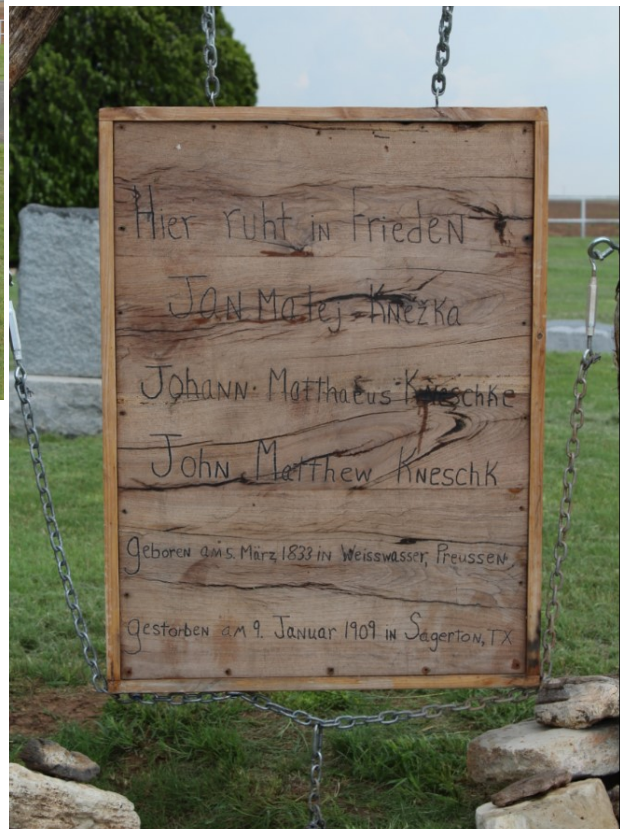 Hier ruht in Frieden
Jan Matej Knežka
Johann Matthaeus Kneschke
John Matthew Kneschk
geboren am 5. März 1833 in Weisswasser, Preussen,
gestorben am 9. Januar 1909 in Sagerton, TX